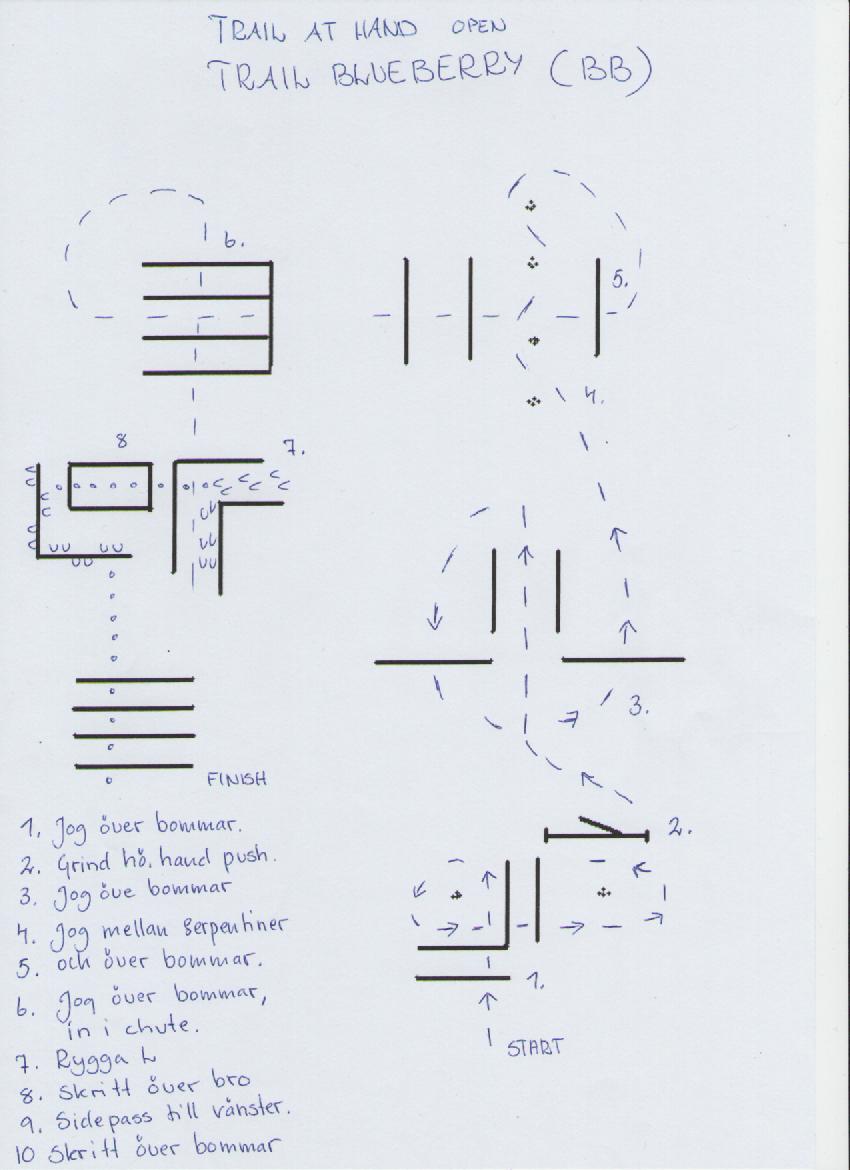 TRAIL AT HAND OPEN
TRAIL BLUEBERRY (BB)
6.
5.
4.
8
7.
3.
FINISH
2.
1.
START
1. Jog över bommar.
2. Grind hö. hand push.
3. Jog öve bommar
4. Jog mellan serpentiner
5. och över bommar.
6. Jog över bommar,
in i chute.
7. Rygga L
8. Skritt över bro
9. Sidepass till vänster.
10 Skritt över bommar